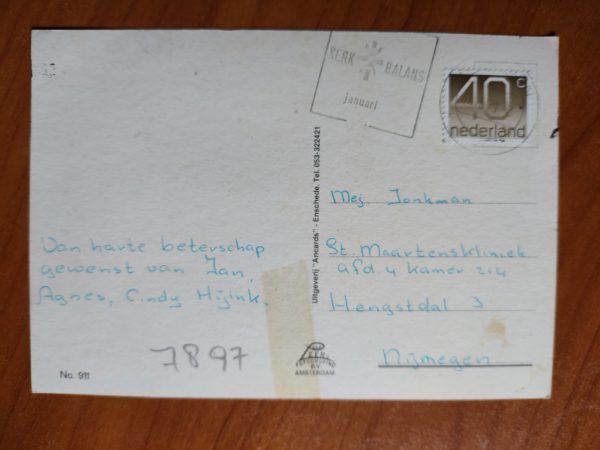 KERK BALANS
januari
40c
nederland
Van harte beterschap
gewenst van Jan,
Agnes, Cindy Hijink.
7897
No. 911
Uitgeverij "Ancards" - Enschede. Tel. 053-322421
Mej Jonkman
St. Maartenskliniek
afd 4 kamer 214
Hengstdal 3
Nijmegen
B.V.
AMSTERDAM